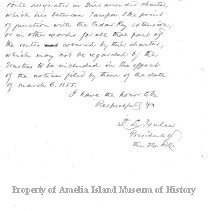 route designated in their amended charter,
which lies between Tampa & the point
of junction with the Cedar Key extension,
or in other words for all that part of
the route not covered by this charter,
which may not be regarded by the
Trustees to be included in the effect
of the notice filed by them of the date
of March 6. 1855.
I have the honor to be
Respectfully yrs
D. L. Yulee
President of
the Fla. R.R.
Property of Amelia Island Museum of History